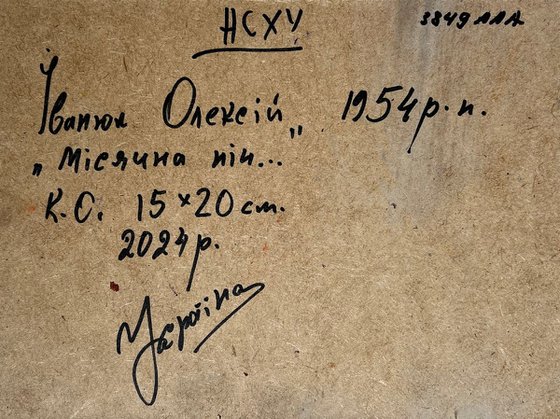 НСХУ
3849 ААА
Іванюк Олексій 1954 р.н.
„Місячна ніч..."
К.О. 15×20 см.
2024 р.
Україна